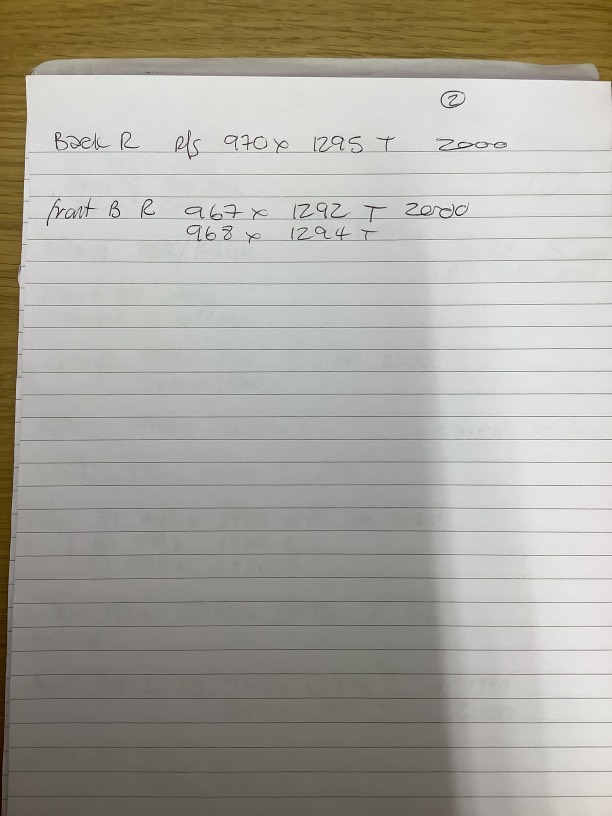 2
Back R R/S 970 x 1295 T 2000
front B R 967 x 1292 T 2000
968 x 1294 T